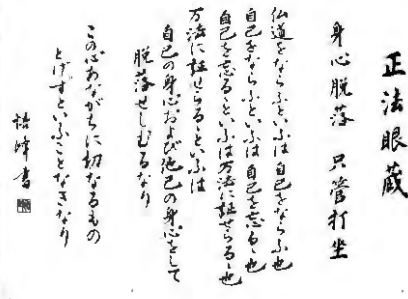 正法眼蔵
身心脱落　只管打坐
仏道をならふといふは自己をならふ也
自己をならふといふは自己を忘るゝ也
自己を忘るゝといふは万法に証せらるゝ也
万法に証せらるゝといふは
自己の身心および他己の身心をして
脱落せしむるなり
この心あながちに切なるもの
とげずといふことなきなり
悟峰書